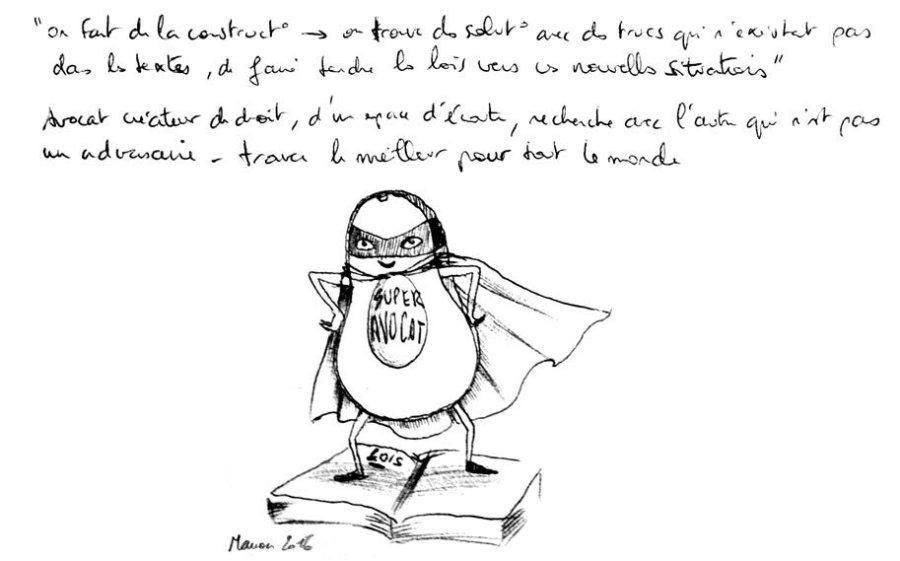 "on fait de la construct° → on trouve des solut° avec des trucs qui n'existent pas
dans les textes, de faire tendre les lois vers ces nouvelles situations"
Avocat créateur de droit, d'un espace d'écoute, recherche avec l'autre qui n'est pas
un adversaire - trouver le meilleur pour tout le monde
SUPER
AVOCAT
LOIS
Manon 2016